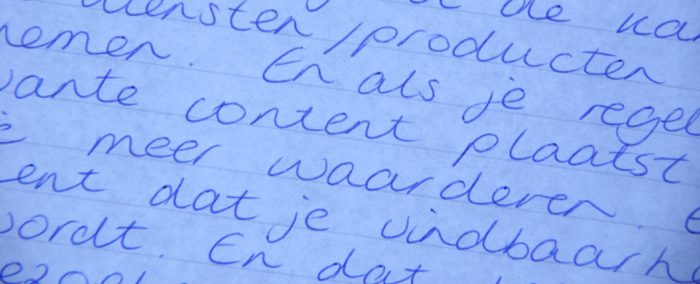 de kan
diensten/producten
nemen. En als je regel
vante content plaatst
meer waarderen.
ent dat je vindbaarhe
wordt. En dat